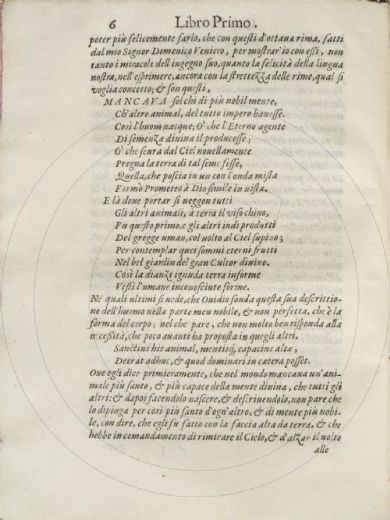 6 Libro Primo.
poter più felicemente farlo, che con questi d'ottaua rima, fatti
dal mio Signor Domenico Veniero, per mostrar'io con essi, non
tanto i miracoli dell'ingegno suo, quanto la felicità della lingua
nostra, nell'esprimere, ancora con la strettezza delle rime, qual si
voglia concetto; & son questi,
MANCAVA sol chi di più nobil mente,
Ch'altro animal, del tutto impero hauesse.
Così l'huom nacque; O' che l'Eterno agente
Di semenza diuina il producesse;
O' che scura dal Ciel nouellamente
Pregna la terra di tal seme fesse,
Quella, che poscia in un con l'onda mista
Formò Prometeo à Dio simile in uista.
E là doue portar si ueggon tutti
Gli altri animali, a terra il viso chino,
Fù questo primo, e gli altri indi produtti
Del gregge uman, col uolto al Ciel supino;
Per contemplar quei sommi eterni frutti
Nel bel giardin del gran Cultor diuino.
Così la dianzi ignuda terra informe
Vestì l'umane inconosciute forme.
Ne' quali ultimi si uede, che Ouidio fonda questa sua descrittione
dell'huomo nella parte men nobile, & non perfetta, che è la
forma del corpo; nel che pare, che non molto ben risponda alla
necessità, che poco auanti ha proposta in quegli altri.
Sanctius his animal, mentisq; capacius altæ,
Deerat adhuc, & quod dominari in cætera posset.
Oue egli dice primieramente, che nel mondo mancaua un'animale
più santo, & più capace della mente diuina, che tutti gli
altri: & dapoi facendolo nascere, & descriuendolo, non pare che
lo dipinga per così più santo d'ogn'altro, & di mente più nobile,
con dire, che egli fu fatto con la faccia alta da terra, & che
hebbe in comandamento di rimirare il Cielo, & d'alzar il uolto
alle